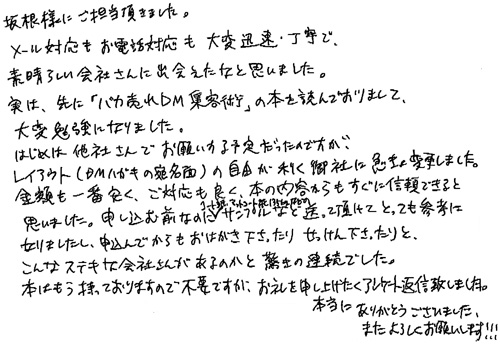 坂根様にご担当頂きました。
メール対応もお電話対応も大変迅速・丁寧で、
素晴らしい会社さんに出会えたなと思いました。
実は、先に「バカ売れDM集客術」の本を読んでおりまして、
大変勉強になりました。
はじめは他社さんでお願いする予定だったのですが、
レイアウト(DMハガキの宛名面)の自由が利く御社に急きょ変更しました。
金額も一番安く、ご対応も良く、本の内容からもすぐに信頼できると
思いました。申し込む前なのにサンプルなど送って頂けてとっても参考に
なりましたし、申込んでからもおはがき下さったりせっけん下さったりと、
こんなステキな会社さんがあるのかと驚きの連続でした。
本はもう持っておりますので不要ですが、お礼を申し上げたくアンケート返信致しました。
本当にありがとうございました。
またよろしくお願いします!!!